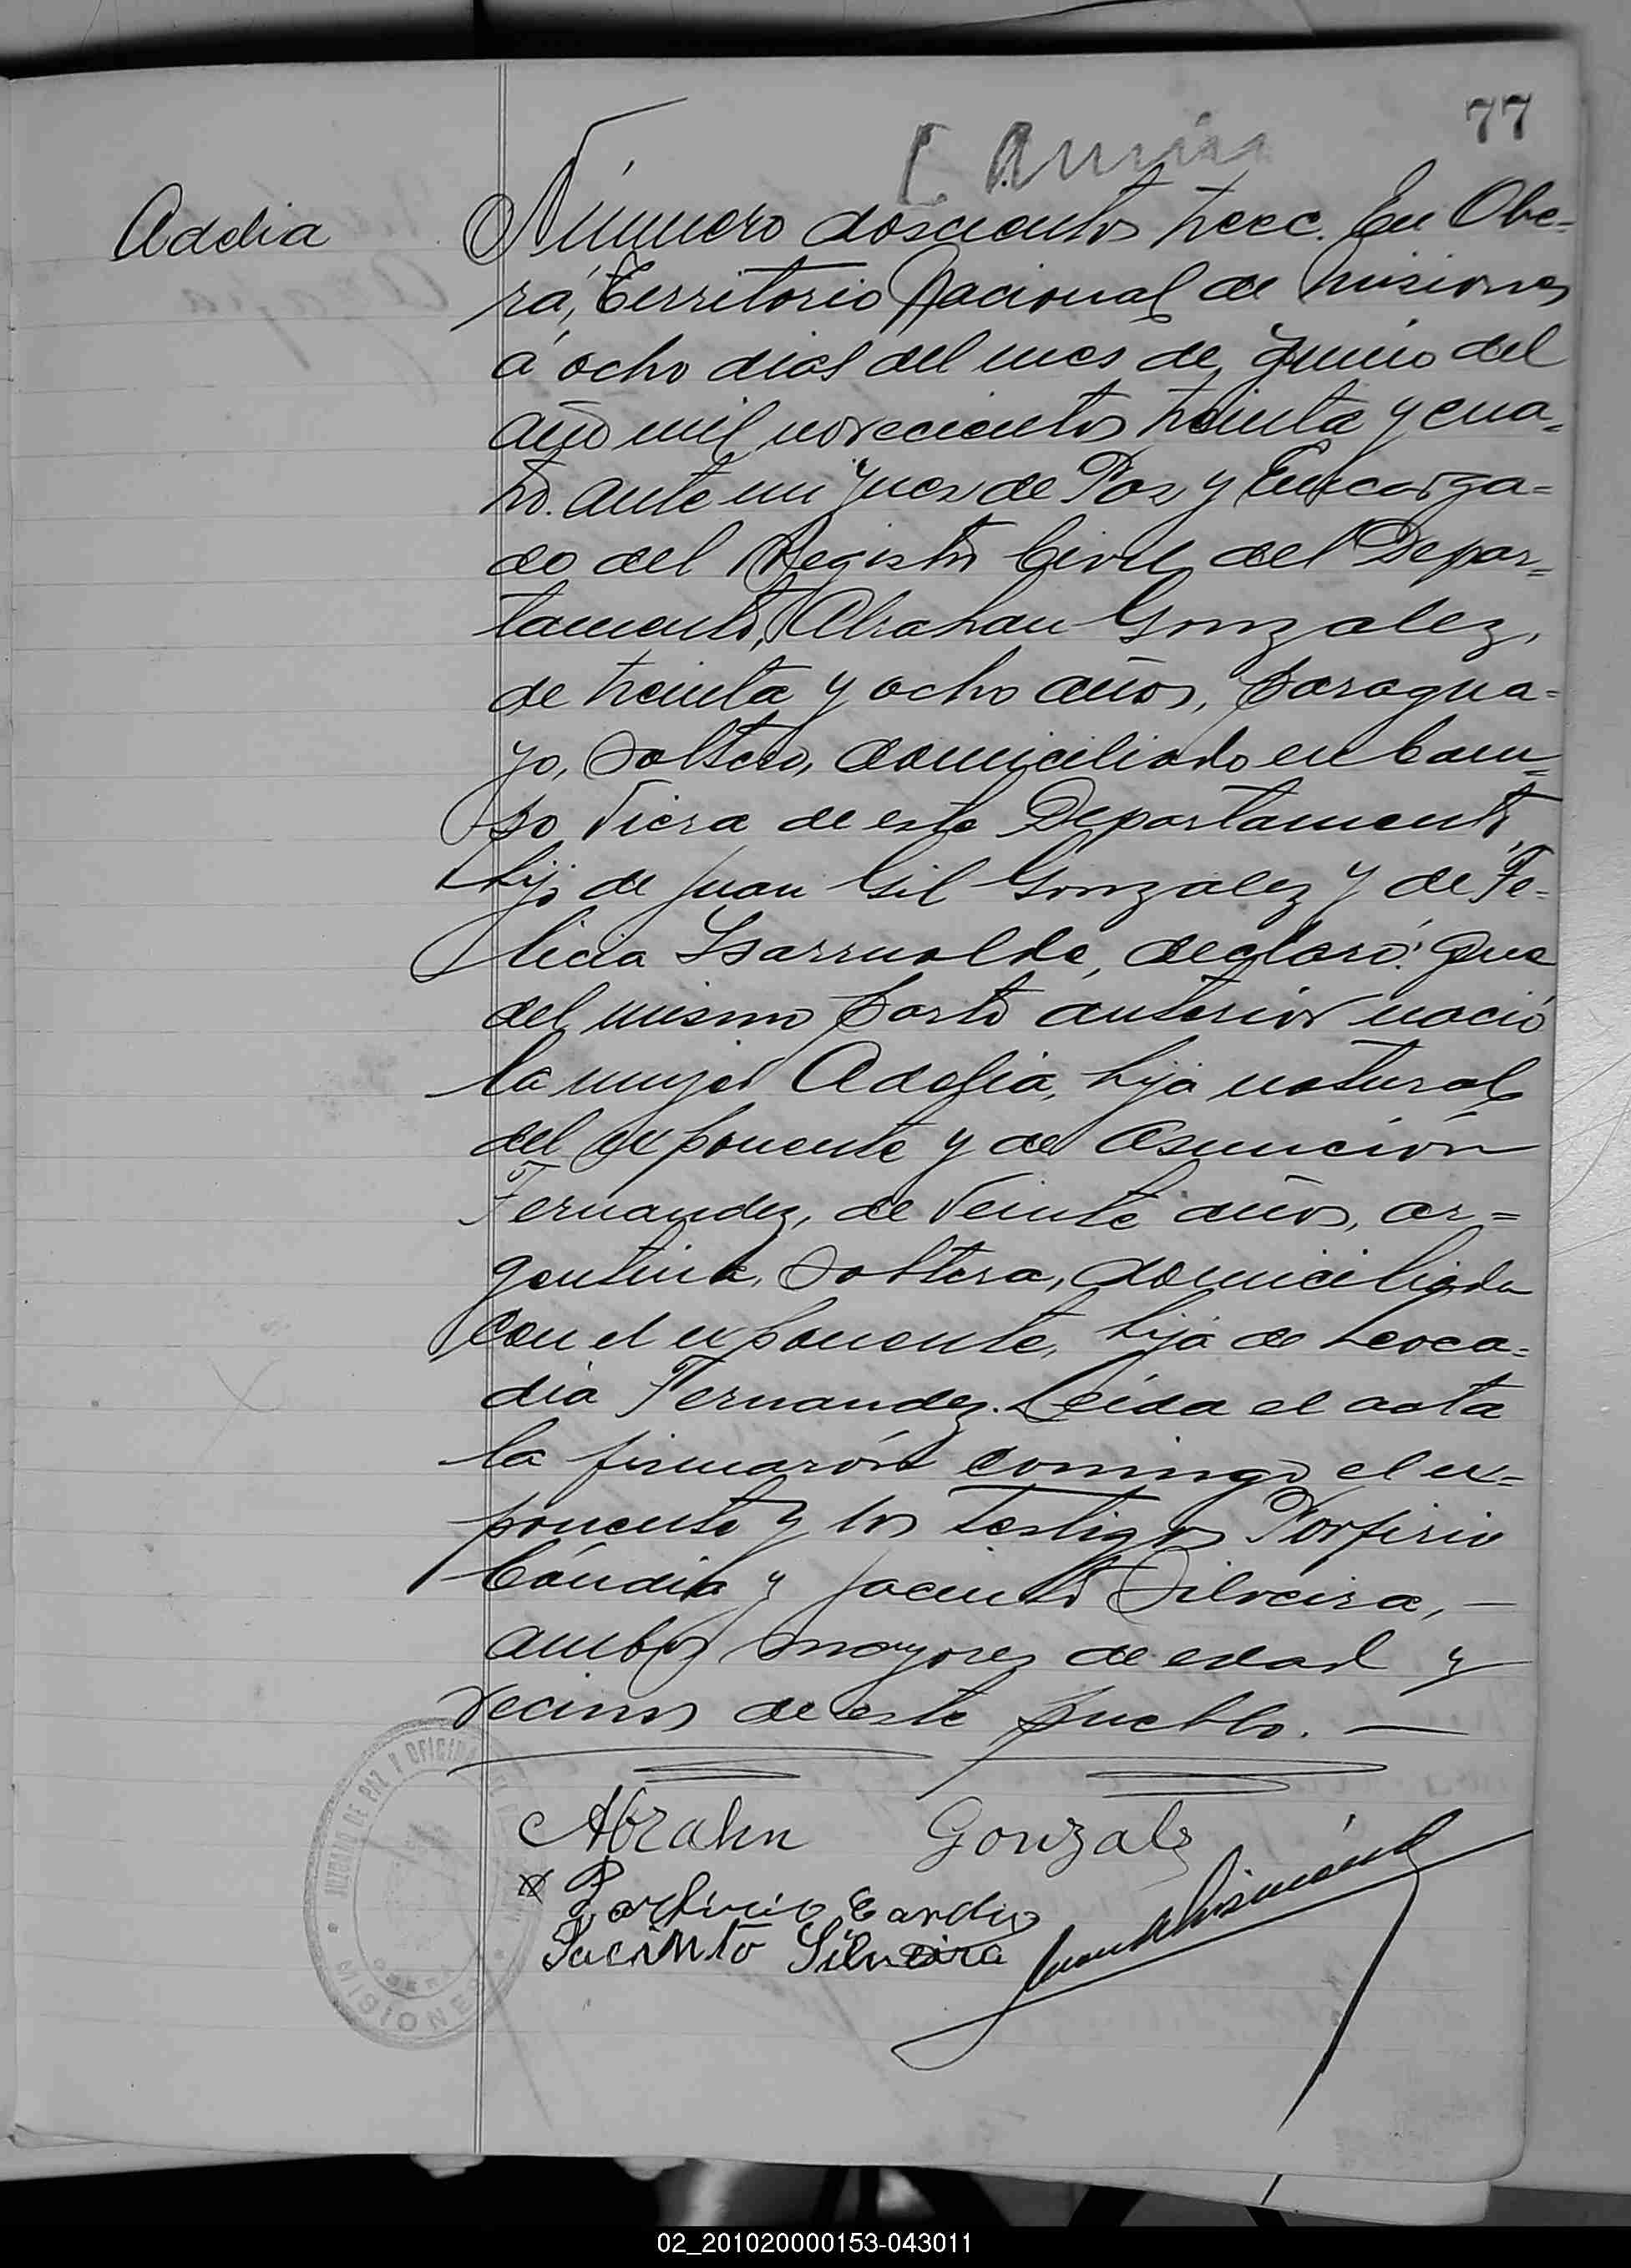 77
Adelia
Número doscientos trece. En Obe=
rá, Territorio Nacional de Misiones
á ocho dias del mes de Junio del
año mil novecientos treinta y cua=
tro. ante mi Juez de Paz y Encarga=
do del Registro Civil del Depar=
tamento, Abrahan Gonzalez,
de treinta y ocho años, paragua=
yo, soltero, domiciliado en Cam=
po Viera de este Departamento,
hijo de Juan Gil Gonzalez y de Fe=
licia declaró: Que
del mismo parto anterior nació
la mujer Adelia, hija natural
del exponente y de Asunción
Fernandez, de veinte años, ar=
gentina, soltera, domiciliada
con el exponente, hija de Leoca=
dia Fernandez. Leída el acta
la firmarón conmigo el ex=
ponente y los testigos Porfirio
Cándia y Jacinto Silveira, —
ambos mayores de edad y
vecinos de este pueblo. —
Abrahn Gonzalz
Porfirio Candia
Jacinto Silveira
JUZGADO DE PAZ Y OFICINA DEL
OBERA
MISIONES
02_201020000153-043011